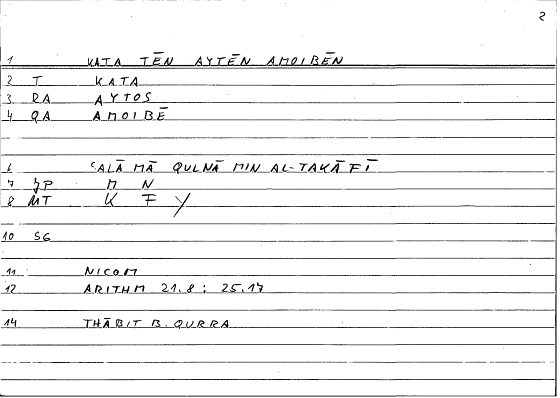 2
1 KATA TĒN AYTĒN AMOIBĒN
2 T KATA
3 RA AYTOS
4 QA AMOIBĒ
6 ʿALĀ MĀ QULNĀ MIN AL-TAKĀFĪ
7 JP M N
8 MT K F Y
10 SG
11 NICOM
12 ARITHM 21.8 ; 25.17
14 THĀBIT B. QURRA